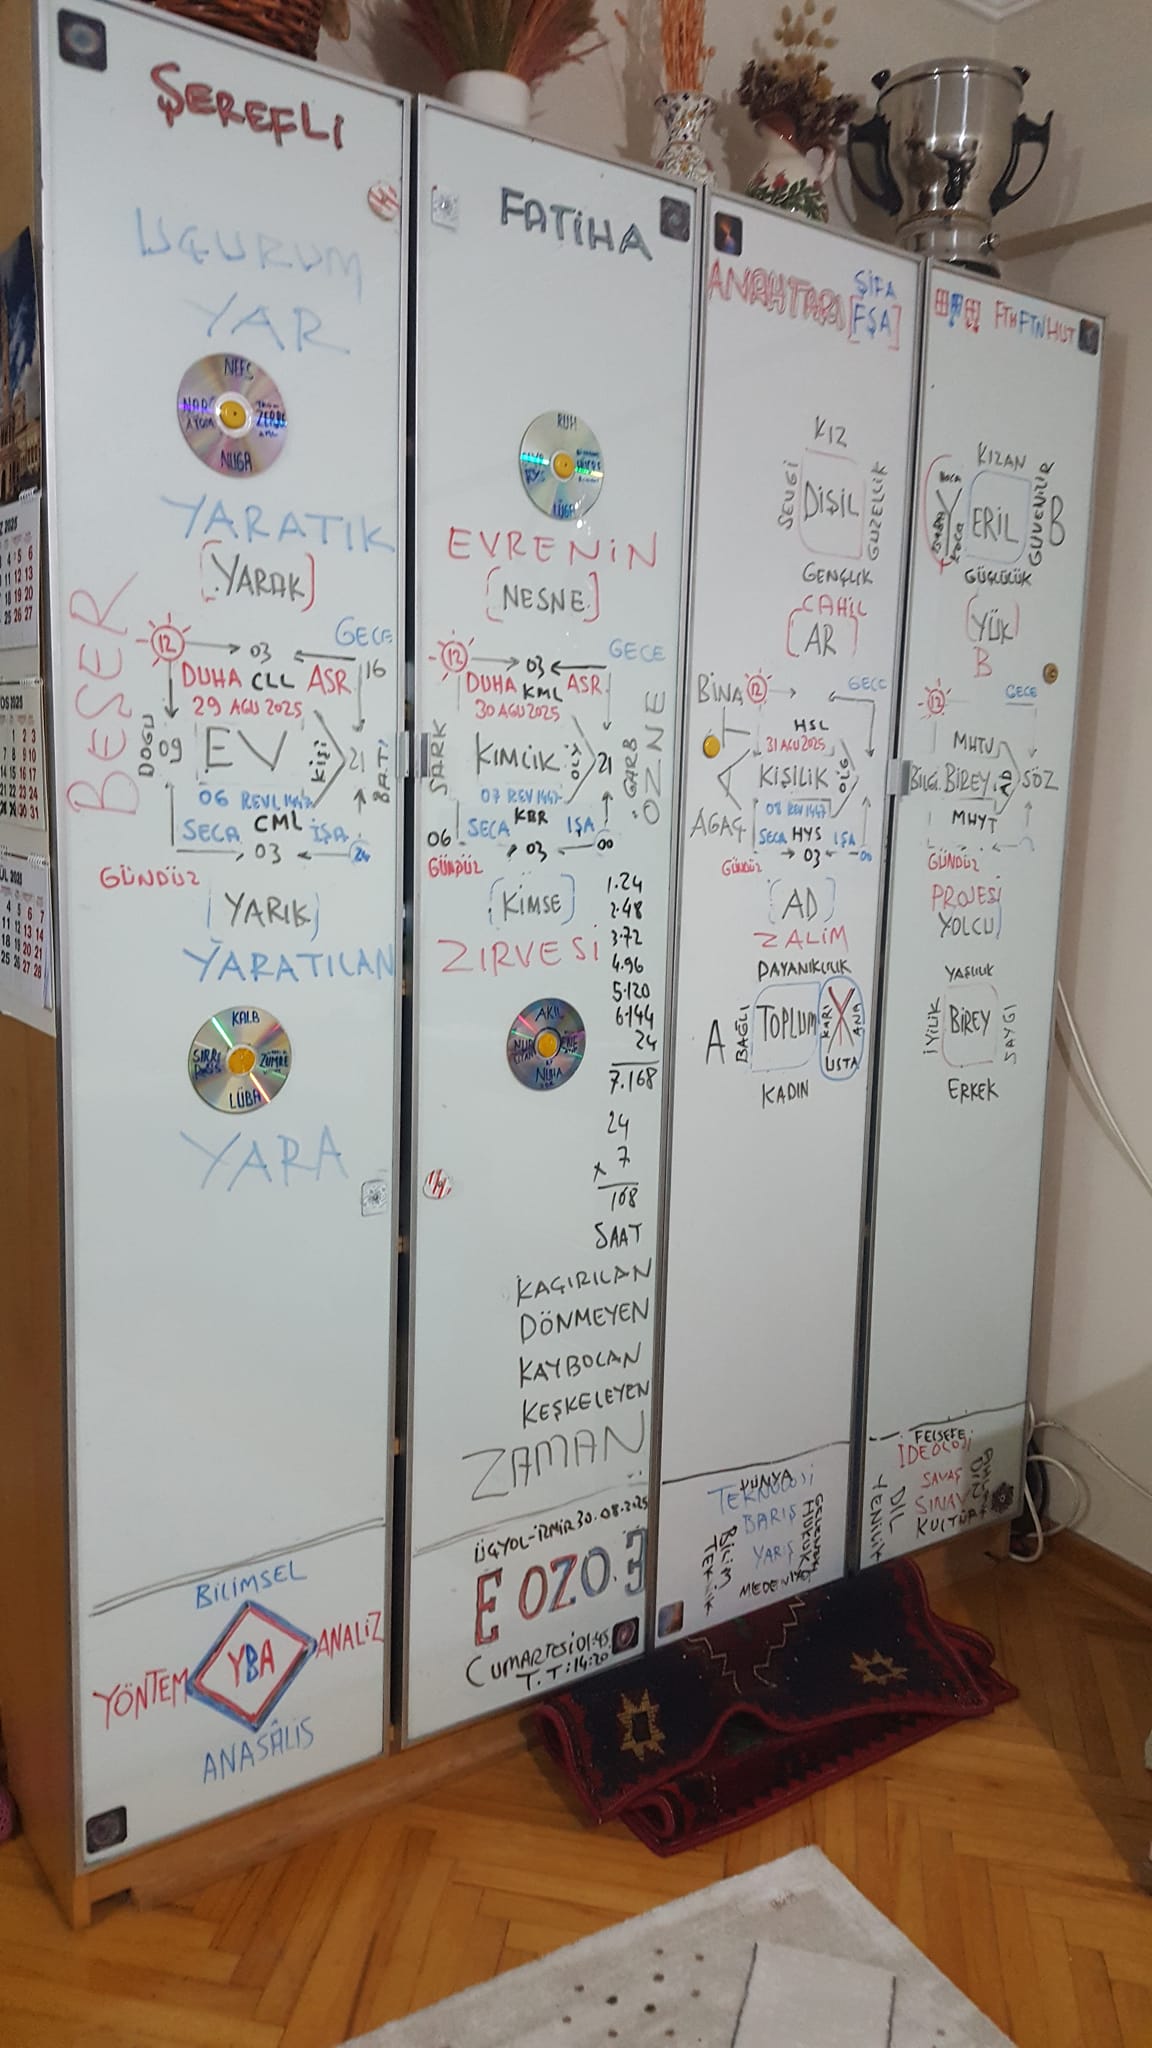 ŞEREFLİ
UÇURUM
YAR
NEFS
NUGA
YARATIK
[YARAK]
BEŞER
12
03
GECE
16
DUHA CLL ASR
29 AGU 2025
DOGU
09
EV
KİŞİ
21
BATI
06 REVL 1447
SECA CML İŞA
03
24
GÜNDÜZ
[YARIK]
YARATILAN
KALB
SIRRI
ZÜMRE
LÜBA
YARA
BİLİMSEL
YÖNTEM
YBA
ANALİZ
ANASÂLİS
FATİHA
RUH
EVRENİN
[NESNE]
12
03
GECE
DUHA KML ASR
30 AGU 2025
ŞARK
KİMLİK
21
GARB
ÖZNE
07 REV 1447
SECA KBR İŞA
06
03
00
GÜNDÜZ
[KİMSE]
ZİRVESİ
AKIL
NUR
NUHA
1.24
2.48
3.72
4.96
5.120
6.144
24
7.168
24
x 7
168
SAAT
KAÇIRILAN
DÖNMEYEN
KAYBOLAN
KEŞKELEYEN
ZAMAN
ÜÇYOL-İZMİR 30.08.2025
E OZO.3
CUMARTESİ 01:45
T.T:14:20
ANAHTARI
ŞİFA
[FŞA]
KIZ
SEVGİ
DİŞİL
GÜZELLİK
GENÇLİK
CAHİL
[AR]
BİNA
12
GECE
HSL
31 AGU 2025
KİŞİLİK
08 REV 1447
AGAÇ
SECA HYS İŞA
03
00
GÜNDÜZ
[AD]
ZALİM
DAYANIKLILIK
A
BAĞLI
TOPLUM
KARI
ANA
USTA
KADIN
DÜNYA
TEKNOLOJİ
BARIŞ
YARIŞ
BİLİM
TEKNİK
HUKUK
FTH FTN HUT
KIZAN
ERİL
GÜVENİLİR
B
GÜÇLÜLÜK
[YÜK]
B
12
GECE
MHTV
BİLGİ.BİREY.
SÖZ
MHYT
GÜNDÜZ
PROJESİ
YOLCU
YAŞLILIK
İYİLİK
BİREY
SAYGI
ERKEK
FELSEFE
İDEOLOJİ
SAVAŞ
SINAV
KÜLTÜR
DİL
YENİLİK
DİN